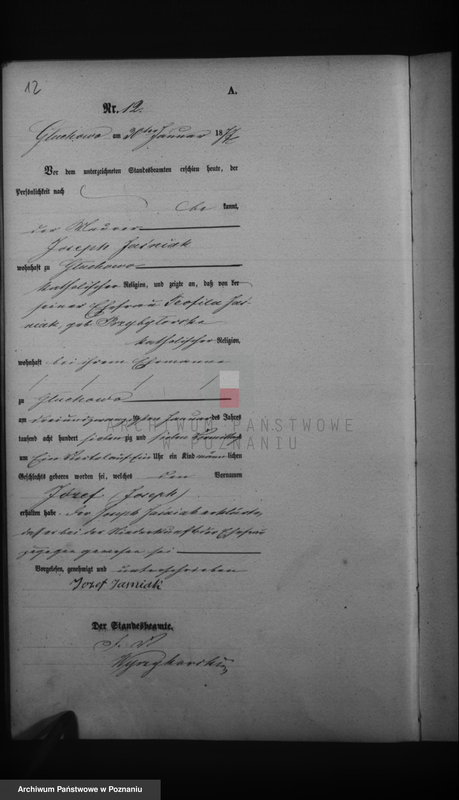 12
A.
Nr. 12.
Gluchowo am 30ten Januar 1877
Vor dem unterzeichneten Standesbeamten erschien heute, der
Persönlichkeit nach
be kannt,
der Maurer
Joseph Jaśniak
wohnhaft zu Gluchowo
katholischer Religion, und zeigte an, daß von der
seiner Ehefrau Teofila Jaś-
niak, geb. Przybylska
katholischer Religion,
wohnhaft bei ihrem Ehemanne
zu Gluchowo
am dreiundzwanzigsten Januar des Jahres
tausend acht hundert siebenzig und sieben
um Uhr ein Kind männlichen
Geschlechts geboren worden sei, welches den Vornamen
Józef (Joseph)
erhalten habe. Der Joseph Jaśniak erklärte,
daß er bei der Niederkunft der Ehefrau
zugegen gewesen sei
Vorgelesen, genehmigt und unterschrieben
Jozef Jasniak
Der Standesbeamte.
ARCHIWUM PAŃSTWOWE
W POZNANIU
Archiwum Państwowe w Poznaniu